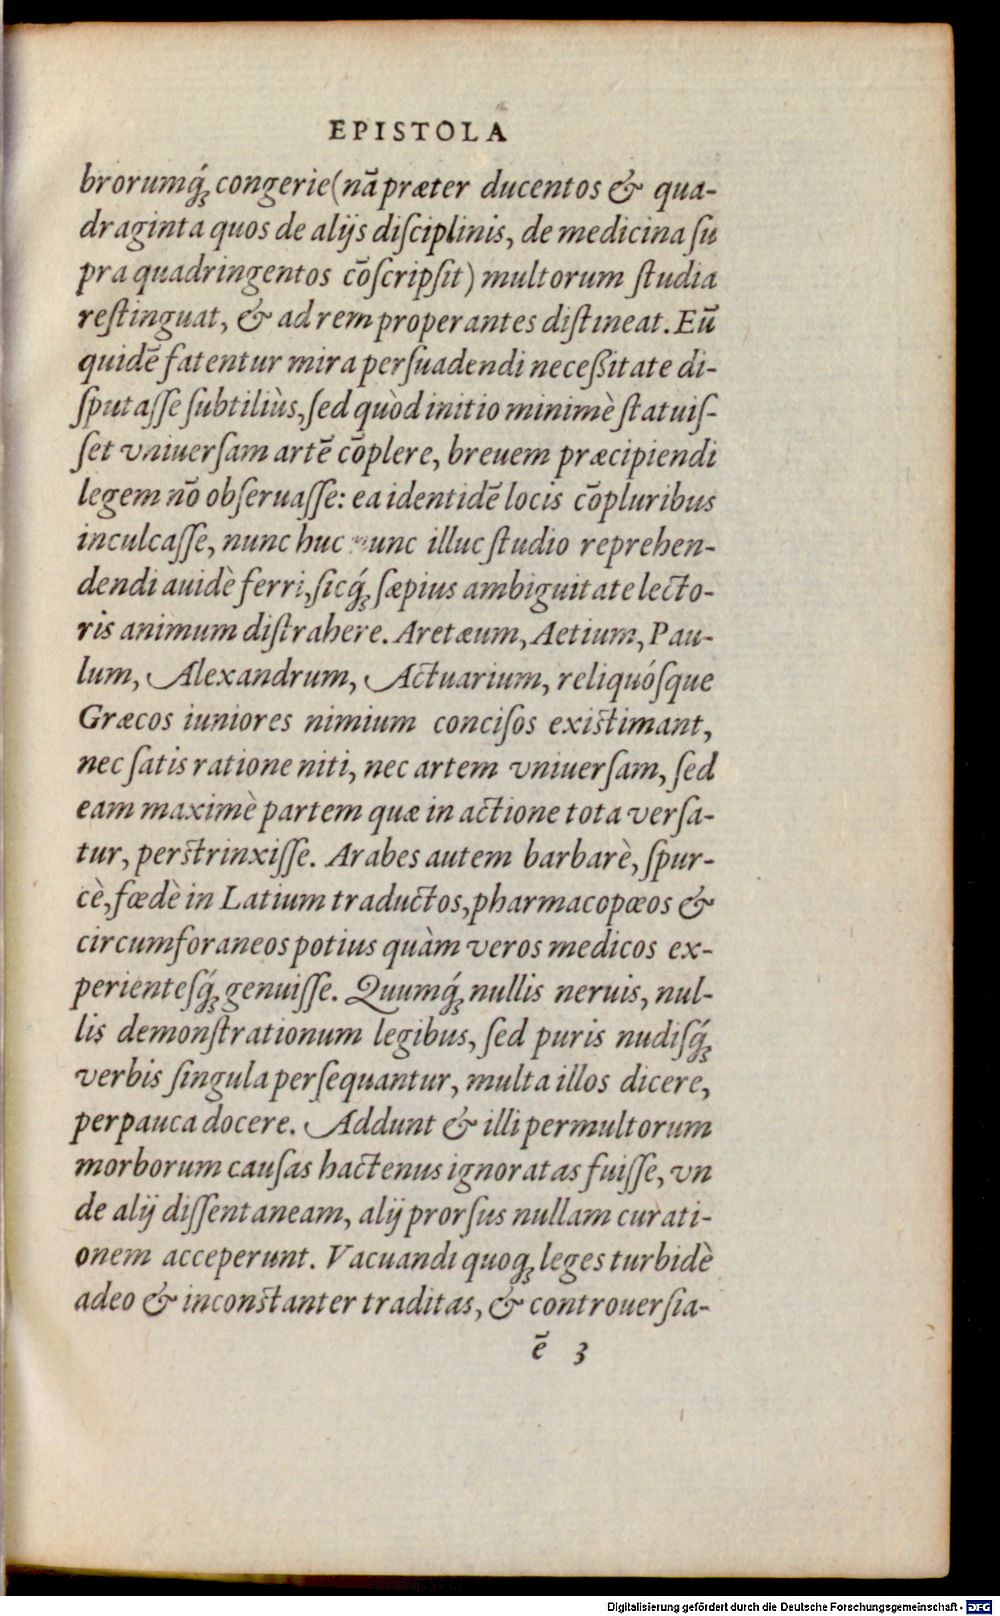 EPISTOLA
brorumq́ꝫ congerie (nā præter ducentos & qua-
draginta quos de alijs diſciplinis, de medicina ſu
pra quadringentos cōſcripſit) multorum ſtudia
reſtinguat, & ad rem properantes diſtineat. Eū
quidē fatentur mira perſuadendi neceßitate di-
ſputaſſe ſubtiliùs, ſed quòd initio minimè ſtatuiſ-
ſet vniuerſam artē cōplere, breuem præcipiendi
legem nō obſeruaſſe: ea identidē locis cōpluribus
inculcaſſe, nunc huc nunc illuc ſtudio reprehen-
dendi auidè ferri, ſicq́ꝫ ſæpius ambiguitate lecto-
ris animum diſtrahere. Aretæum, Aetium, Pau-
lum, Alexandrum, Actuarium, reliquóſque
Græcos iuniores nimium conciſos exiſtimant,
nec ſatis ratione niti, nec artem vniuerſam, ſed
eam maximè partem quæ in actione tota verſa-
tur, perſtrinxiſſe. Arabes autem barbarè, ſpur-
cè, fœdè in Latium traductos, pharmacopœos &
circumforaneos potius quàm veros medicos ex-
perienteſq́ꝫ genuiſſe. Quumq́ꝫ nullis neruis, nul-
lis demonſtrationum legibus, ſed puris nudiſq́ꝫ
verbis ſingula perſequantur, multa illos dicere,
perpauca docere. Addunt & illi permultorum
morborum cauſas hactenus ignoratas fuiſſe, vn
de alij diſſentaneam, alij prorſus nullam curati-
onem acceperunt. Vacuandi quoqꝫ leges turbidè
adeo & inconſtanter traditas, & controuerſia-
ē 3
Digitalisierung gefördert durch die Deutsche Forschungsgemeinschaft - DFG